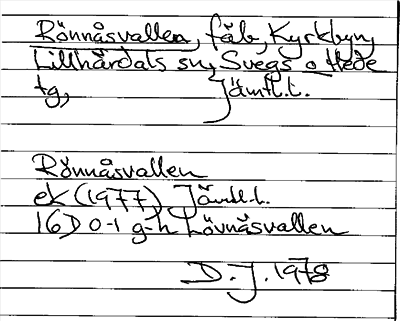 Rönnåsvallen, fäb, Kyrkbyn,
Lillhärdals sn, Svegs o Hede
tg, Jämtl.l.
Rönnåsvallen
ek (1977) Jämtl.l.
16D 0-1 g-h Lövnåsvallen
D.J. 1978